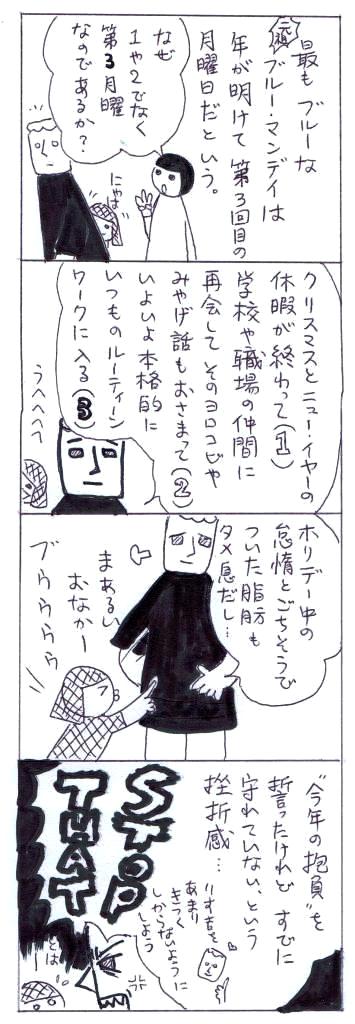 最も ブルーな
ブルー・マンデイは
年が明けて 第3回目の
月曜日だという。
なぜ
1や2でなく
第3月曜
なのであるか?
にゃは
クリスマスとニュー・イヤーの
休暇が終わって(1)
学校や職場の仲間に
再会して そのヨロコビや
みやげ話もおさまって(2)
いよいよ本格的に
いつものルーティーン
ワークに入る(3)
うへへへ
ホリデー中の
怠惰とごちそうで
ついた脂肪も
タメ息だし…
まあるい
おなかー
ブゥゥゥゥ
"今年の抱負"を
誓ったけれど すでに
守れていない、という
挫折感…
あまり
きつく
しからないように
しよう
STOP
THAT
とは